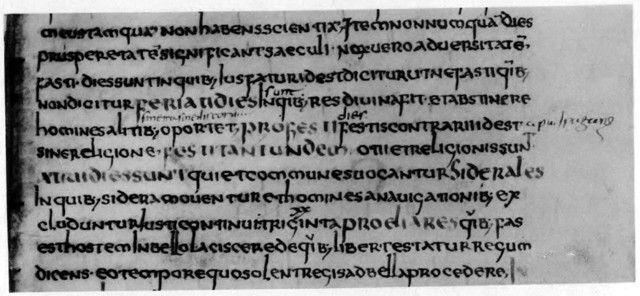 meus tamqua non habens scientiæ Item nonnumqua dies
prusperetate significant saeculi · nox uero aduersitate,
fasti · dies sunt in quib; ius fatur id est dicitur ut nefasti qib;
sunt
non dicitur feriati dies In qib; res diuina fit · et abstinere
dies
homines a litib; oportet, profesti festis contrarii id est
sine religione · festi tantundem otii et religionis sunt
Atri dies sunt qui et communes uocantur siderales
In quib; sidera mouentur et homines a nauigationib; ex
xxx
cluduntur Iusti continui triginta proeliares qib; fas
est hostem In bello laciscere de qib; liber testatur regum
dicens · eo tempore quo solent regis ad bella procedere,